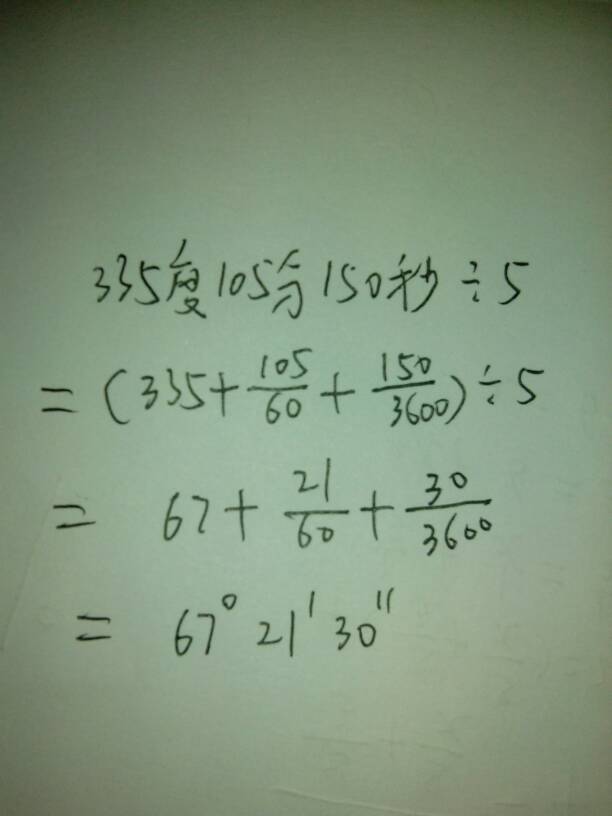 335度105分150秒÷5
=(335+105/60+150/3600)÷5
=67+21/60+30/3600
=67°21′30″